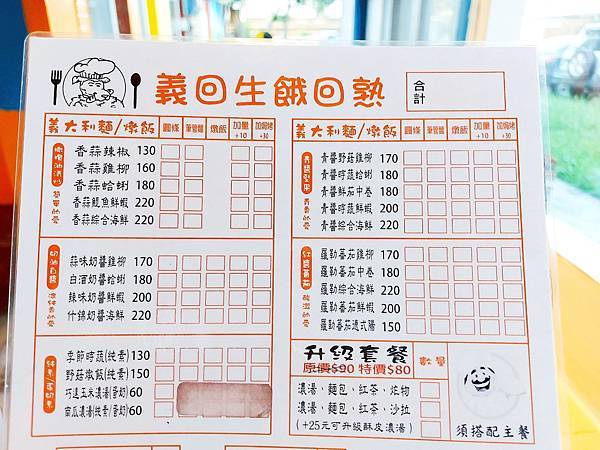 義回生餓回熟
合計
義大利麵/燉飯 圓條 筆管麵 燉飯 加量+10 加焗烤+30
橄欖油清炒
簡單的愛
香蒜辣椒 130
香蒜雞柳 160
香蒜蛤蜊 180
香蒜鯷魚鮮蝦 220
香蒜綜合海鮮 220
奶油白醬
濃純香的愛
蒜味奶醬雞柳 170
白酒奶醬蛤蜊 180
辣味奶醬鮮蝦 200
什錦奶醬海鮮 220
純素/蛋奶素
季節時蔬(純素) 130
野菇燉飯(純素) 150
巧達玉米濃湯(蛋奶) 60
南瓜濃湯(純素/蛋奶) 60
義大利麵/燉飯 圓條 筆管麵 燉飯 加量+10 加焗烤+30
青醬堅果
青香的愛
青醬野菇雞柳 170
青醬時蔬蛤蜊 180
青醬鮮茄中卷 180
青醬時蔬鮮蝦 200
青醬綜合海鮮 220
紅醬蕃茄
酸溜的愛
羅勒蕃茄雞柳 170
羅勒蕃茄中卷 180
羅勒綜合海鮮 220
羅勒蕃茄鮮蝦 200
羅勒蕃茄德式腸 150
升級套餐 數量
原價$90 特價$80
濃湯、麵包、紅茶、炸物
濃湯、麵包、紅茶、沙拉
(+25元可升級酥皮濃湯)
須搭配主餐